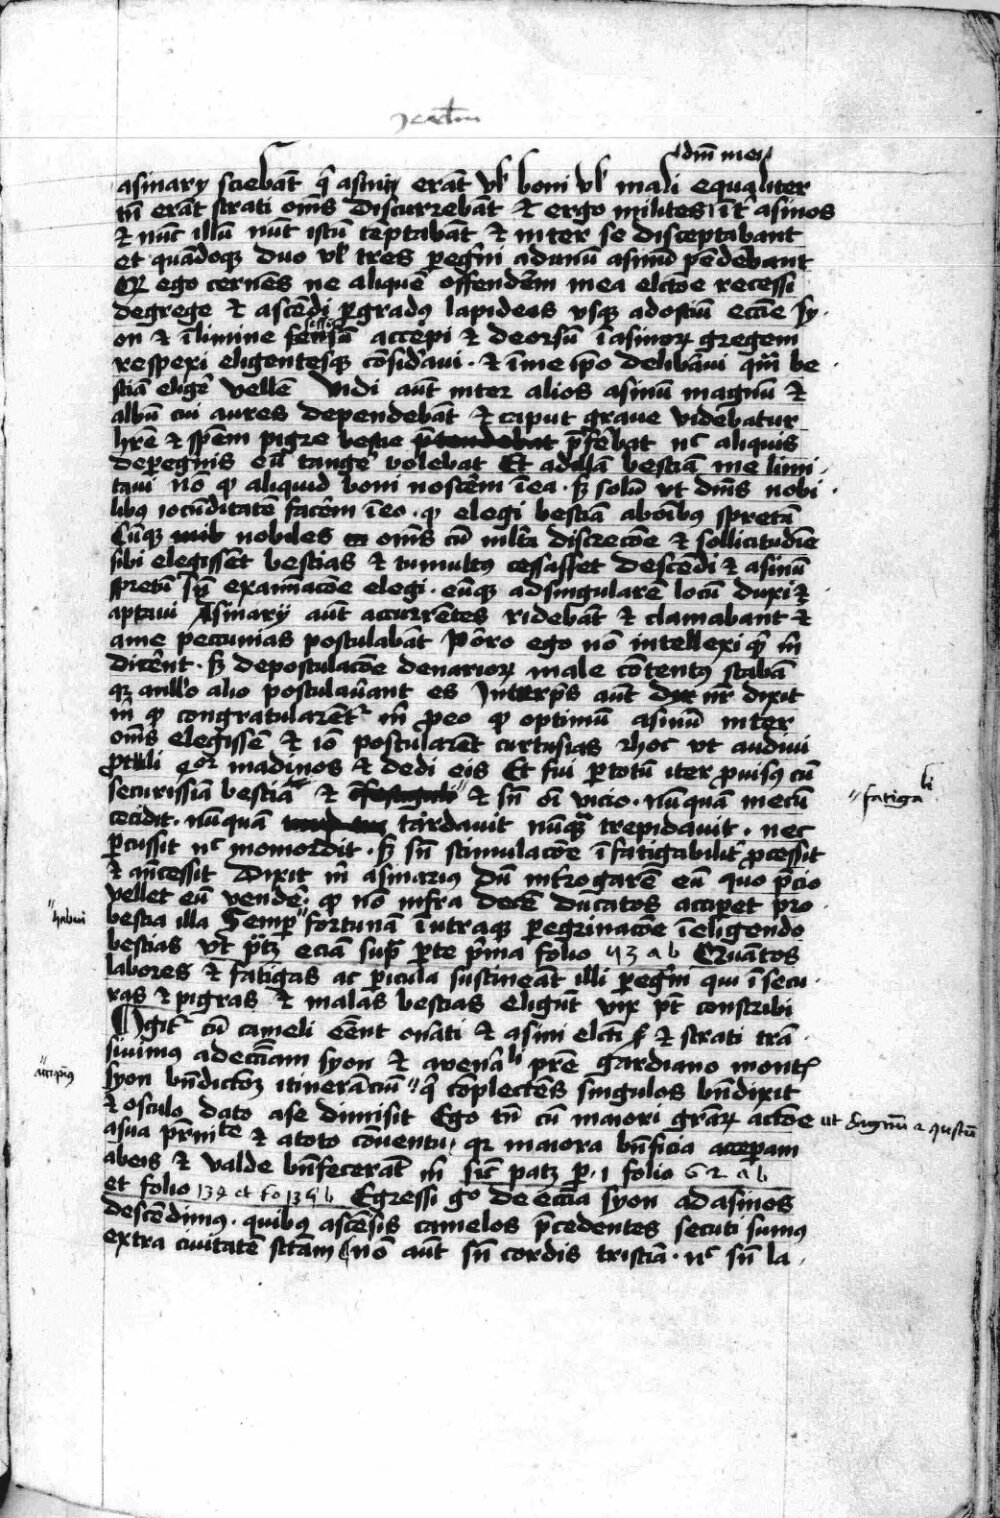 dn̄i mei
asinarij sciebāt q̄ asini erāt vl boni vl mali equaliter
tn̄ erāt strati om̄s discurrebāt et ergo milites īt asinos
et nūc illū nūc istū teptabāt et inter se disceptabant
et quādoqz duo vl tres peḡni ad unū asinū pēdebant
Qz ego cernēs ne aliquē offendēm mea elctōe recessi
degrege et ascēdi p gradus lapideos vsqz ad ostiū eccīe sy
on et ī limine accepi et deorsū ī asinoꝝ gregem
respexi eligentesqz cōsidāui · et ī me ip̄o delibāui qm̄ be
stiā eligē vellē Vidi aūt inter alios asinū magnū et
albū cui aures dependebāt et caput graue videbatur
h̄re et spēm pigre bestie p̄ferebat nc aliquis
de peḡnis eū tangē volebat Et ad illā bestiā me limi
taui nō qp aliquid boni noscēm ī ea · sz solū vt dn̄is nobi
libus iocūditatē facēm ī eo · qp elegi bestiā ab oībus spretā
Cūqz nobiles om̄s cū mlta discrecōe et sollicitudīe
sibi elegissēt bestias et tumultus cessasset descēdi et asinū
spretū sn̄ examinacōe elegi · eūqz ad singularē locū duxi et
aptaui Asinarij aūt accurrētes ridebāt et clamabant et
a me peccunias postulabāt Porro ego nō intellexi qd m̄
dicēnt · sz de postulacōe denarioꝝ male cōtentus stabā
qz a nullo alio postulauant es Interp̄s aūt nr̄ dixit
m̄ qp congratularēt m̄ p eo qp optimū asinū inter
om̄s elegissē et iō postularēt curtusias et hoc vt audiui
ptuli qr̄ madinos et dedi eis Et fui p totū iter puisus cū
securissīa bestiā et et sn̄ oī vicio · nūquā mecū
fatiga li
cecidit · nūquā tardauit nūqz trepidauit · nec
pcussit nc momordit · sz sn̄ stimulacōe ī fatigabilit pcessit
et ān̄cessit Dixit m̄ asinarius dū īn̄trogarē eū quo p̄cio
vellet eū vendē · qp nō infra decē ducatos acciperet pro
habui
bestia illa Semp fortunā ī utraqz peregrinacōe ī eligendo
bestias vt ptz eciā sup pte p̄ma folio 93 a b Quātos
labores et fatigas ac picula sustineāt illi peḡni qui ī secu
ras et pigras et malas bestias eligūt vix pt conscribi
Igit cū cameli eēnt onati et asini elcti et strati trā
siuimus ad ecciam syon et a ven̄ali pr̄e gardiano mont
syon bn̄dictōz itinerāciū q̄ cōplectēs singulos bn̄dixit
accepimus
et osculo dato a se dimisit Ego tn̄ cū maiori gr̄aꝝ actōe
a sua pr̄nite et a toto cōuentu, qz maiora bn̄ficia acceperam
ab eis et valde bn̄fecerāt m̄ sic patz p · 1 folio 62 a b
et folio 139 et fo 139 b Egressi go de eccīa syon ad asinos
descēdimus · quibus ascēsis camelos p̄cedentes secuti sumus
extra ciuitatē sctām nō aūt sn̄ cordis tristiā · nc sn̄ la